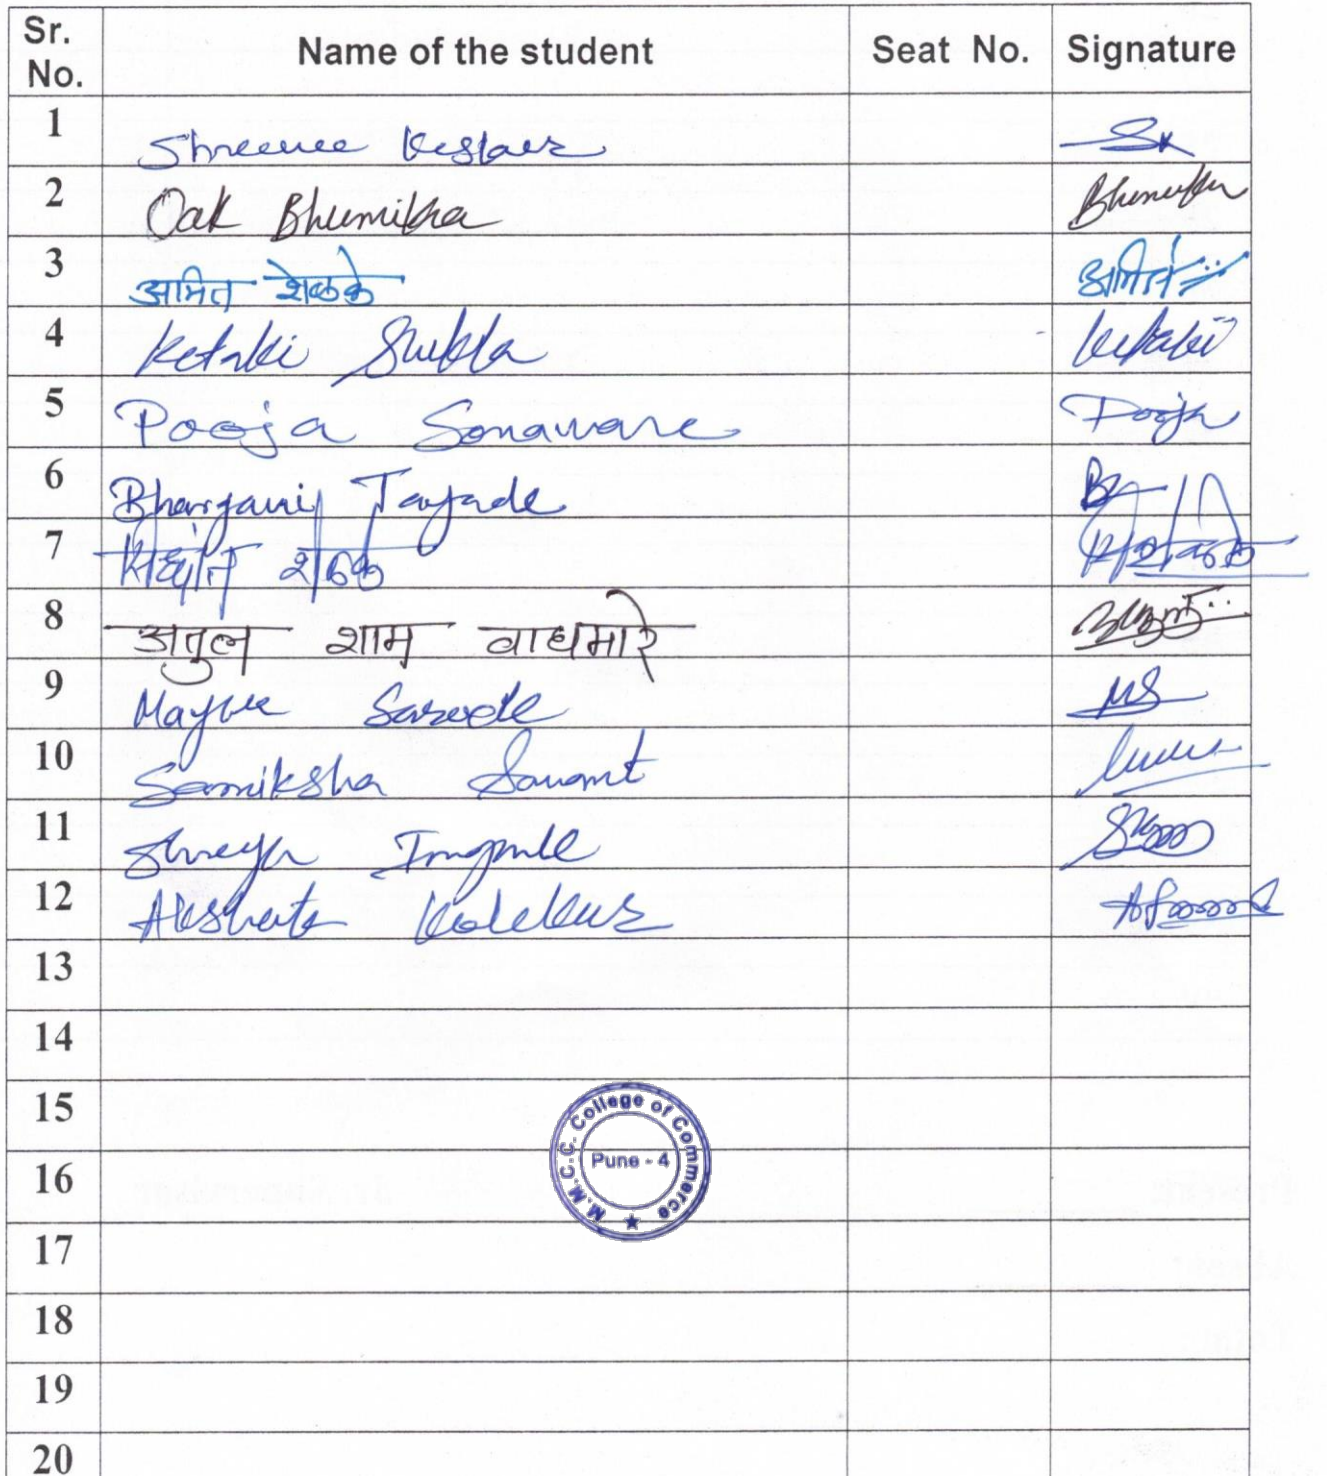 Sr. No. Name of the student Seat No. Signature
1 Shreenee SK
2 Oak Bhumikha Bhumika
3 अमित शेळके अमित
4 Ketaki Shukla Ketaki
5 Pooja Sonawane Pooja
6 Bhargavi Tayade
7
8 अतुल शाम वाघमारे
9 Sarode MS
10 Samiksha Sawant
11 Shreya Ingale
12 Akshata Kalekar
13
14
15
M.M.C.C. College of Commerce
Pune - 4
16
17
18
19
20